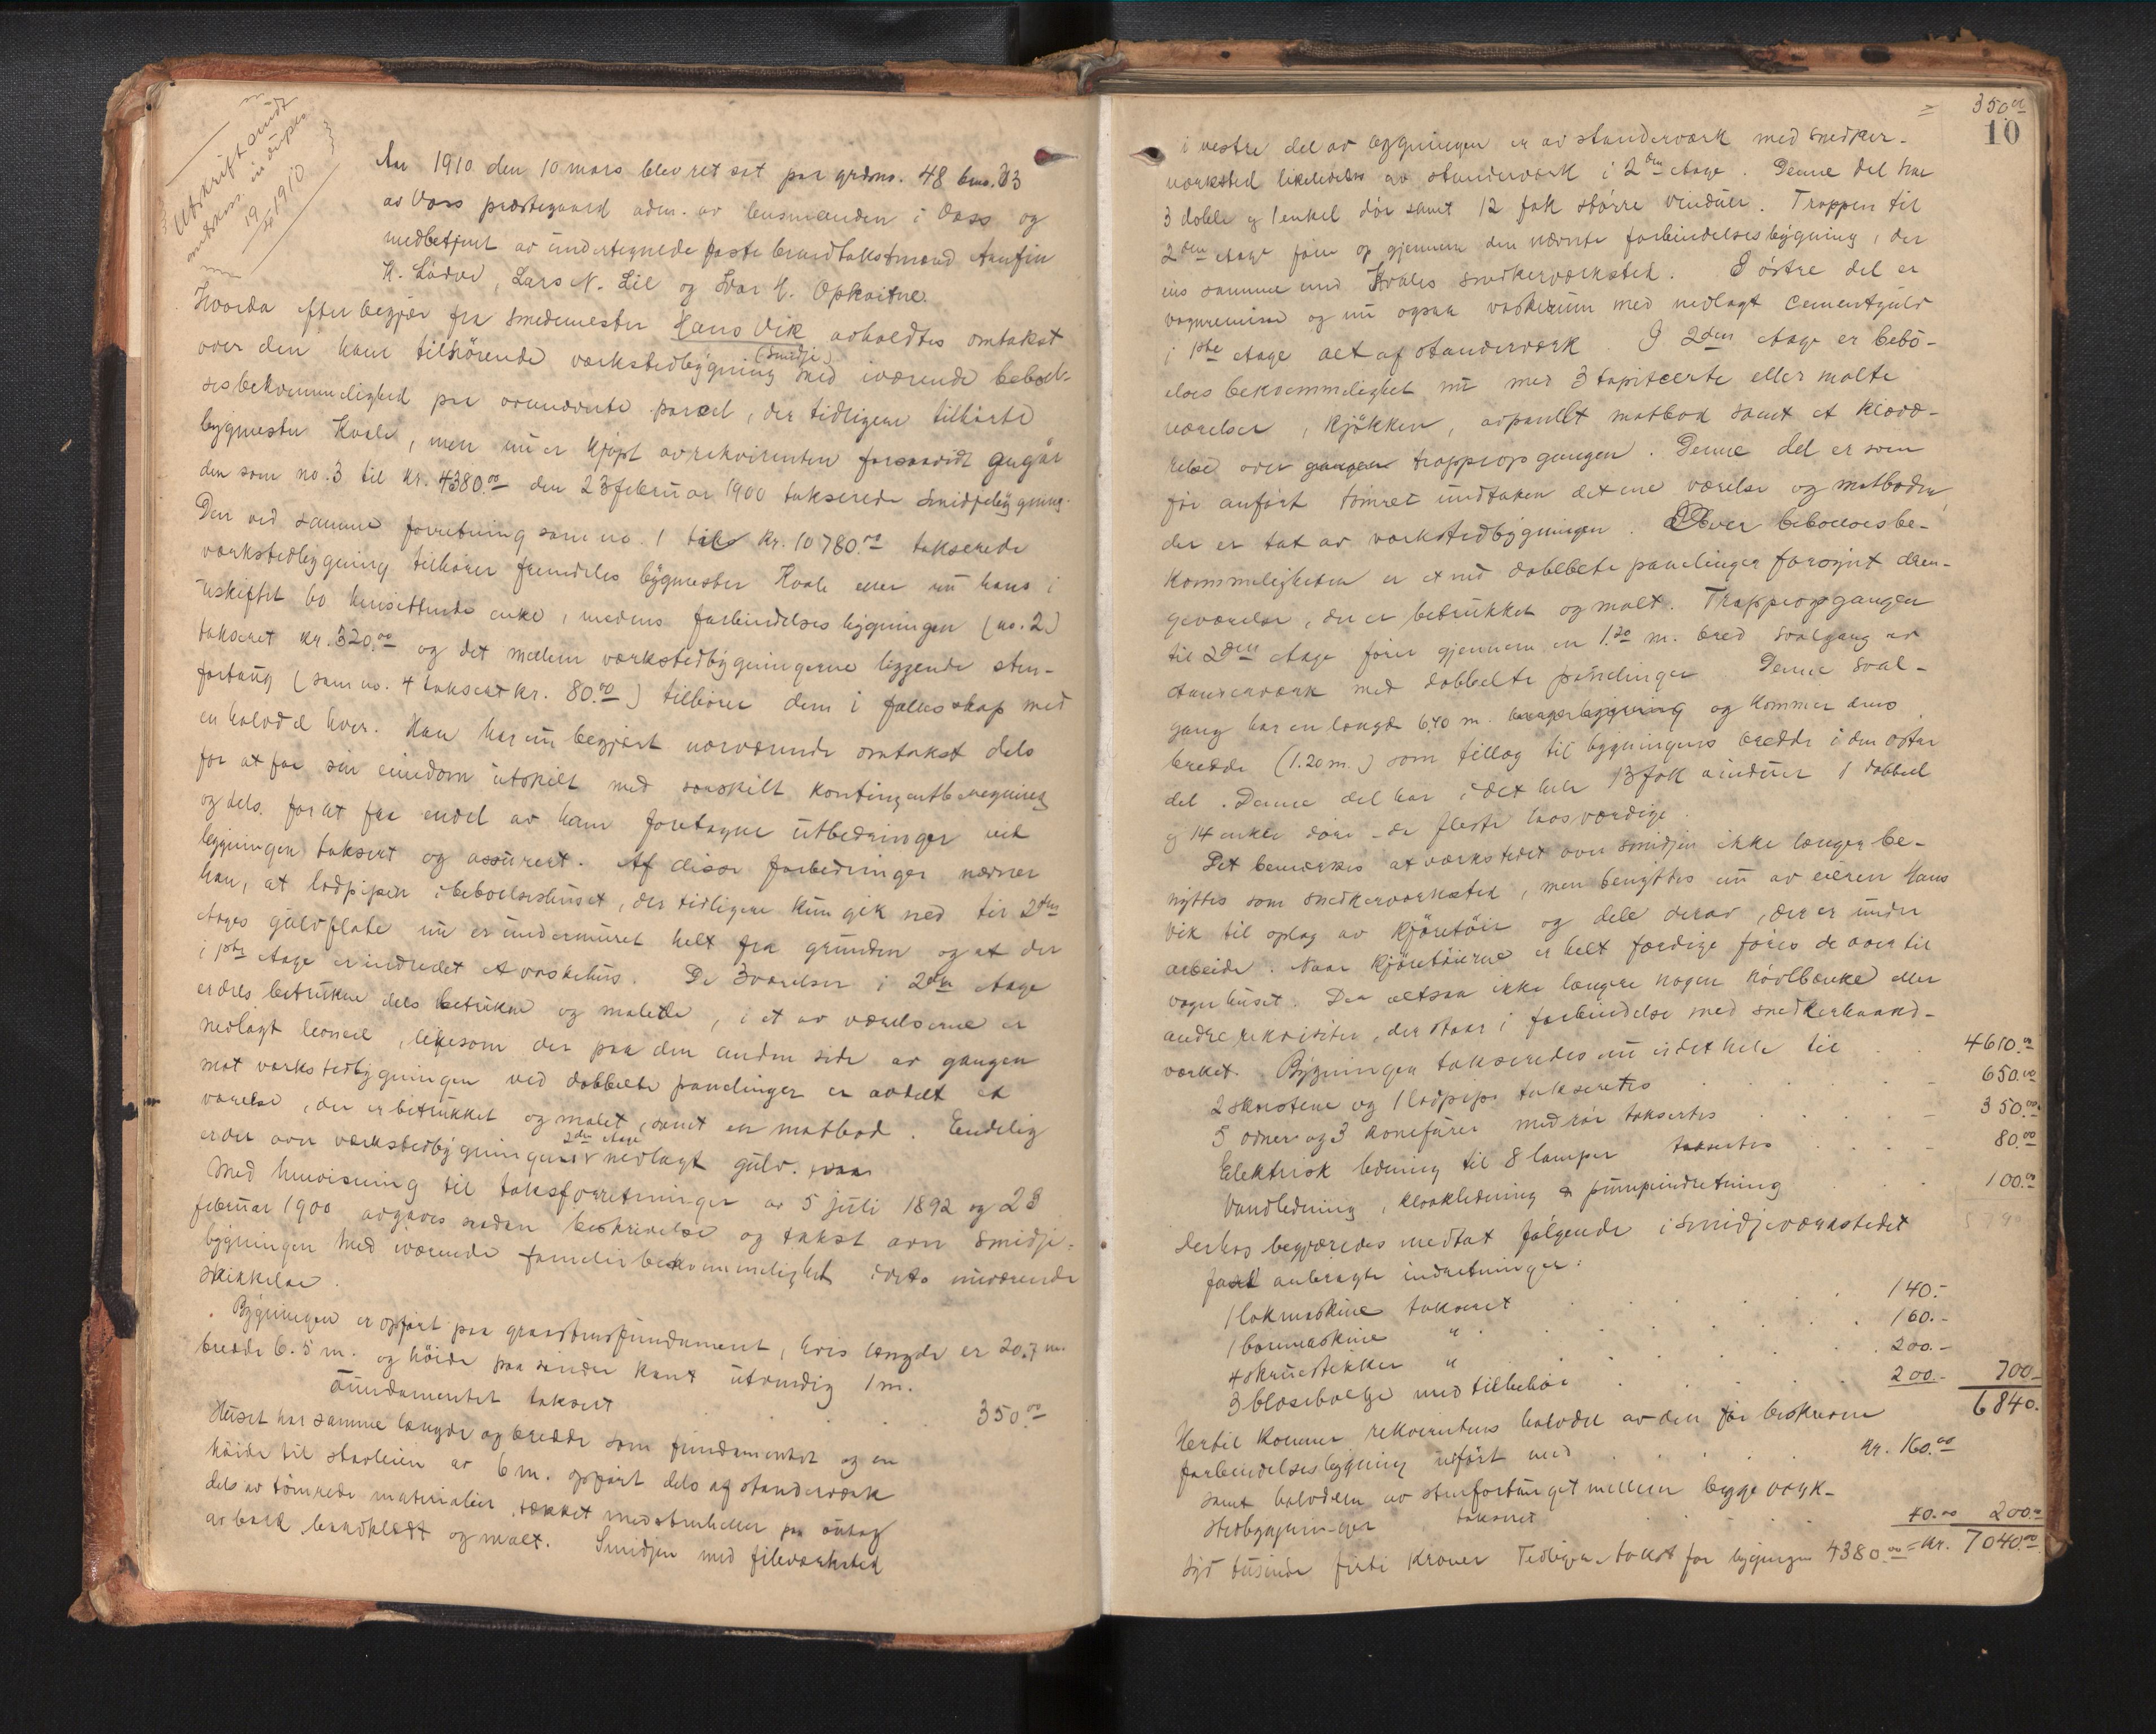 Utskrift sendt
omtaks. in duplo
19/4 1910
Aar 1910 den 10 mars blev ret sat paa grdsno. 48 brno. 33
av Voss præstegaard adm. av lensmanden i Voss og
medbetjent av undertegnede faste brandtakstmænd Anfin
K. Lødve, Lars N. Lie og Ivar E. Opheitne.
Hvorda efter begjær fra smedemester Hans Vik avholdtes omtakst
over den ham tilhørende verkstedbygning (Smidje) med iværende beboel-
sesbekvemmelighed paa ovennævnte parcel, der tidligere tilhørte
bygmester Hvale, men nu er kjøpt av rekvirenten forsaavidt angår
den som no. 3 til kr. 4380.00 den 23 februar 1900 takserede Smidjebygning.
Den ved samme forretning som no. 1 til kr. 10780.00 takserede
værkstedbygning tilhører fremdeles bygmester Hvale eller nu hans i
uskiftet bo hensittende enke, medens forbindelsesbygningen (no. 2)
takseret kr. 320.00 og det mellem værkstedbygningerne liggende sten-
fortaug (som no. 4 taksert kr. 80.00) tilhører dem i fælesskap med
en halvdel hver. Han har nu begjært nærværende omtakst dels
for at faa sin eiendom utskilt med særskilt kontingentberegning
og dels for at faa endel av ham foretagne utbedringer ved
bygningen taksert og assurert. Af disse forbedringer nævner
han, at lodpipen i beboelseshuset, der tidligere kun gik ned til 2den
etages gulvflate nu er undermuret helt fra grunden og at der
i 1ste etage er indredet et vaskehus. De 3 værelser i 2den etage
er dels betrukne dels betrukne og malede, i et av værelserne er
nedlagt linoleum, likesom der paa den anden side av gangen
mot verkstedbygningen ved dobbelte panelinger er avdelt et
værelse, der er betrukket og malet, samt en matbod. Endelig
er der over værkstedbygningens 2den etage nedlagt gulv.
Med henvisning til taksforretninger av 5 juli 1892 og 23
februar 1900 avgaves saadan beskrivelse og takst over Smidje-
bygningen med iværende familiebekvemmelighet i dets nuværende
skikkelse.
Bygningen er opført paa graastensfundament, hvis længde er 20.7 m.
bredde 6.5 m. og høide paa søndre kant utvendig 1 m.
Fundamentet taksert . . . . 350.00
Huset har samme længde og bredde som fundamentet og en
høide til stavleien av 6 m. opført dels af standerværk
dels av tømrede materialier, tækket med stenheller paa
av bord, bordklædt og malt. Smidjen med fileværksted
350.00
10
i vestre del av bygningen er av standerværk med snedker-
værksted likeledes av standerværk i 2den etage. Denne del har
3 doble og 1 enkel dør samt 12 fak større vinduer. Trappen til
2den etage fører op gjennem den nævnte forbindelsesbygning, der
eies sammen med Hvales snedkerværksted. I østre del er
vognremise og nu ogsaa vaskerum med nedlagt cementgulv
i 1ste etage alt af standerværk. I 2den etage er bebo-
elsesbekvemmelighet nu med 3 tapiteerte eller malte
værelser, kjøkken, avpanelt matbod samt et kleevæ-
relse over trappeopgangen. Denne del er som
før anført tømret undtaken det ene værelse og matboden,
der er tat av værkstedbygningen. Over beboelsesbe-
kvemmeligheten er et med dobbelte panelinger forsynt dren-
geværelse, der er betrukket og malt. Trappeopgangen
til 2den etage fører gjennem en 1.20 m. bred svalgang av
standerværk med dobbelte panelinger. Denne sval-
gang har en længde 6.40 m. og kommer dens
bredde (1.20 m.) som tillæg til bygningens bredde i den østre
del. Denne del har i det hele 13 fak vinduer 1 dobbel
og 14 enkle døre - de fleste laasværdige.
Det bemerkes at verkstedet over smidjen ikke længer be-
nyttes som snedkerværksted, men benyttes nu av eieren Hans
Vik til oplag av kjøretøier og dele derav, der er under
arbeide. Naar kjøretøierne er helt færdige føres de over til
vognhuset. Der er altsaa ikke længere nogen høvlbænke eller
andre rekvisiter, der staar i forbindelse med snedkerhaand-
verket. Bygningen takseredes nu i det hele til . . 4610.00
2 skorstene og 1 lodpipe takseredes . . . 650.00
5 ovner og 3 komfurer med rør taksertes . . . 350.00
Elektrisk ledning til 8 lamper taksertes . . . 80.00
Vandledning, kloakledning & pumpeindretning . . . 100.00
5790
Derhos begjæredes medtat følgende i smidjeværkstedet
fast anbragte indretninger:
1 lokmaskine takseret . . . 140.-
1 boremaskine " . . . 160.-
4 skruestikker " . . . 200.-
3 blæsebælge med tilbehør . . . 200.- 700.-
6840.
Hertil kommer rekvirentens halvdel av den før beskrevne
forbindelsesbygning utført med . . . kr. 160.00
samt halvdelen av stenfortauget mellem begge verk-
stedbygninger takseret . . . 40.00 200.00
Syv tusinde firti kroner Tidligere takst for bygningen 4380.00 = kr. 7040.00